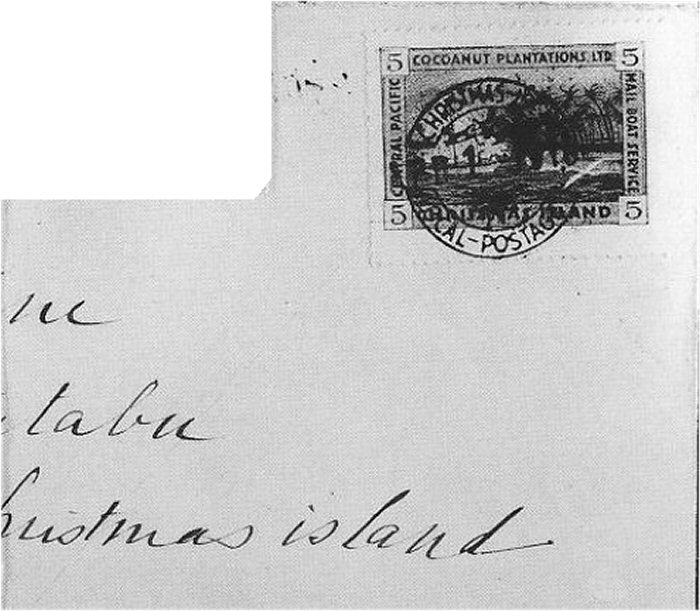 5 COCOANUT PLANTATIONS LTD 5
CENTRAL PACIFIC
MAIL BOAT SERVICE
5 CHRISTMAS ISLAND 5
CHRISTMAS-
LOCAL-POSTAGE
ne
tabu
hristmas island